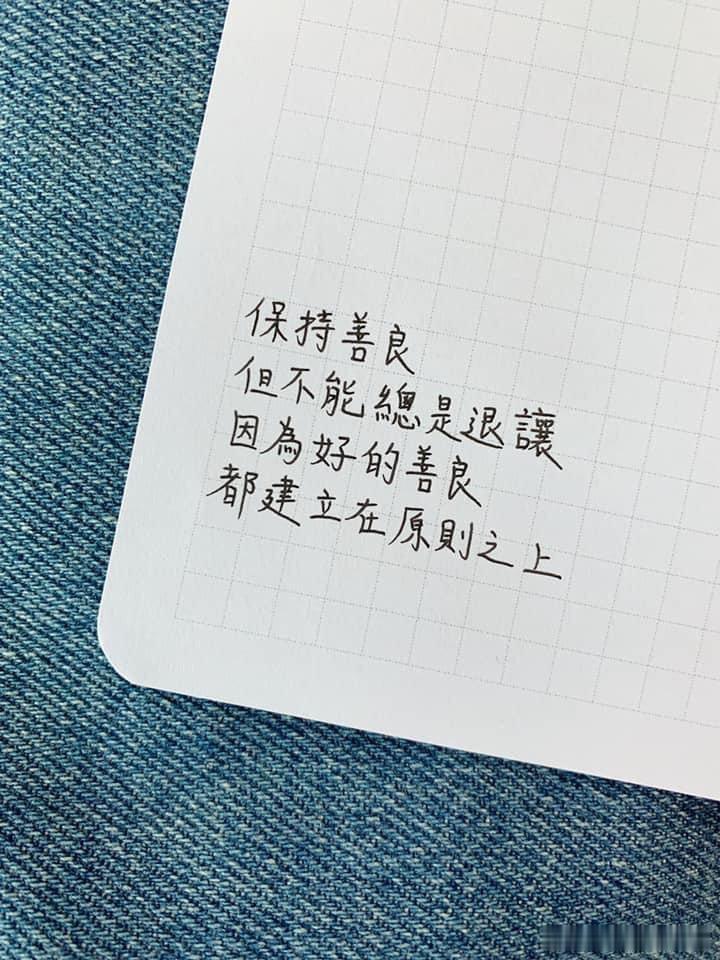 保持善良
但不能總是退讓
因為好的善良
都建立在原則之上